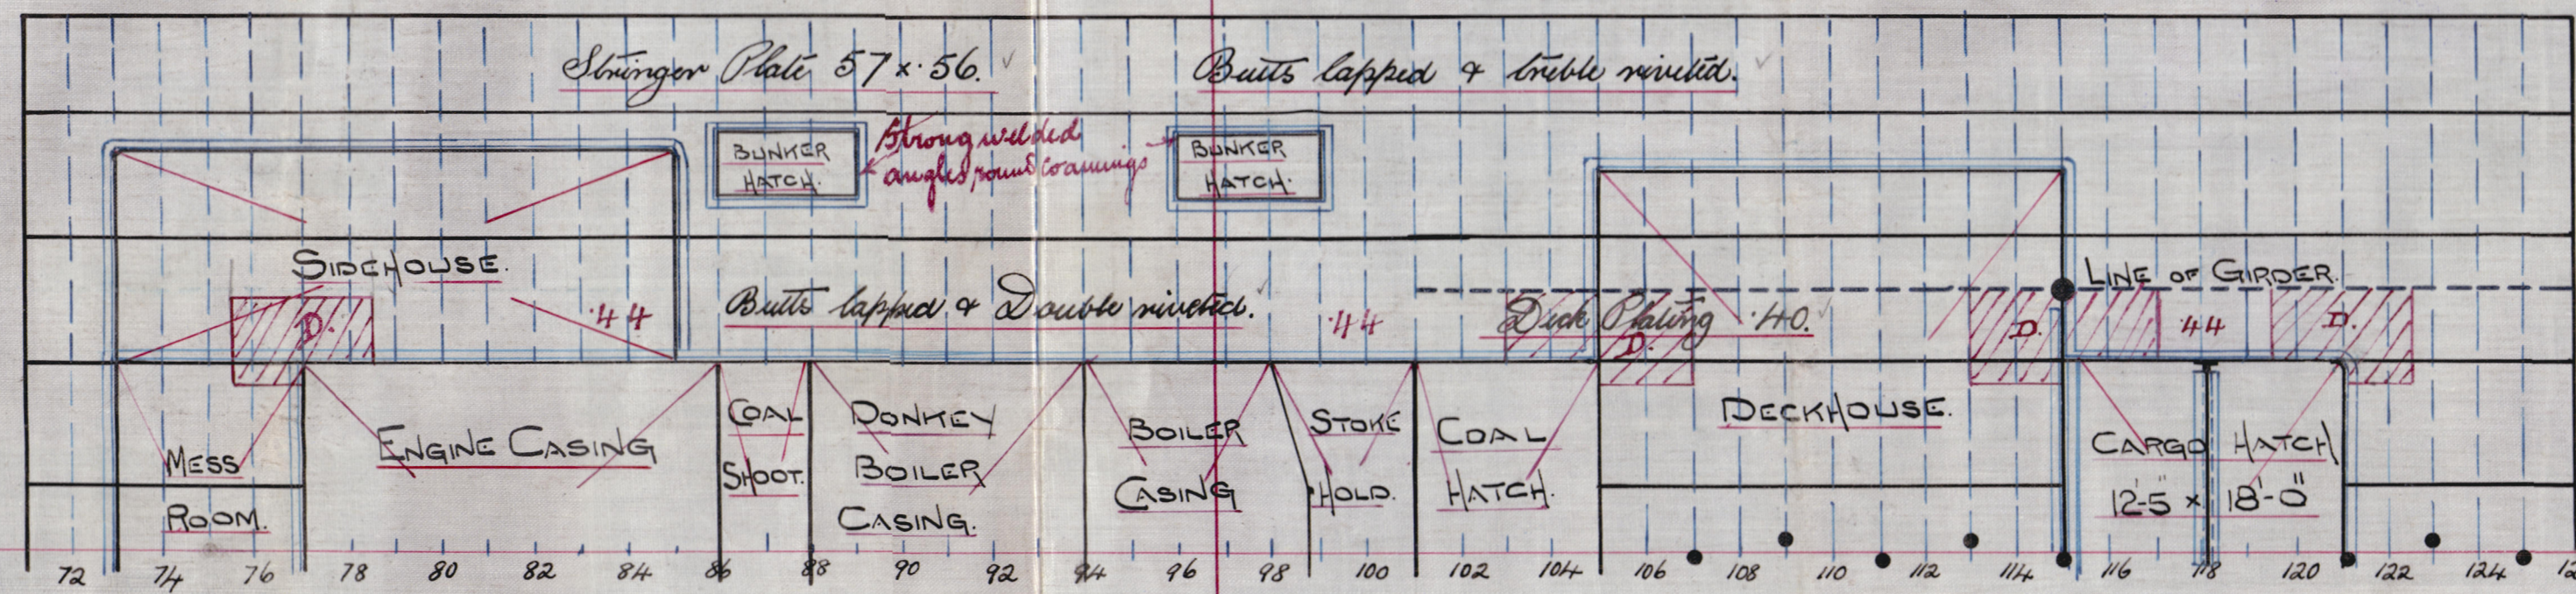 Stringer Plate 57 x .56.
Butts lapped & treble riveted.
BUNKER
HATCH.
Strong welded
angles round coamings
BUNKER
HATCH.
SIDEHOUSE.
D.
.44
Butts lapped & Double riveted.
.44
Deck Plating .40.
D.
LINE OF GIRDER.
D.
.44
D.
MESS
ROOM.
ENGINE CASING
COAL
SHOOT.
DONKEY
BOILER
CASING.
BOILER
CASING
STOKE
HOLD.
COAL
HATCH.
DECKHOUSE.
CARGO HATCH
12'-5" x 18'-0"
72 74 76 78 80 82 84 86 88 90 92 94 96 98 100 102 104 106 108 110 112 114 116 118 120 122 124